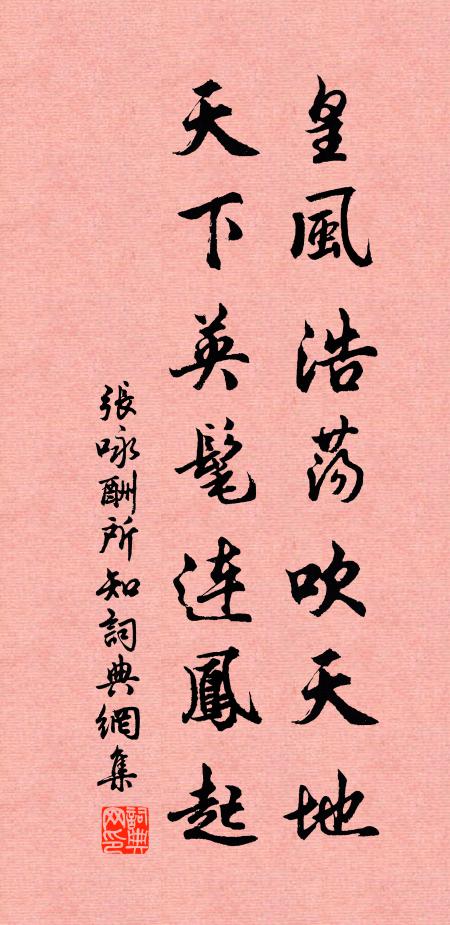 皇風浩蕩吹天地
天下英髦連鳳起
張咏酬所知詞典網集
詞典网印